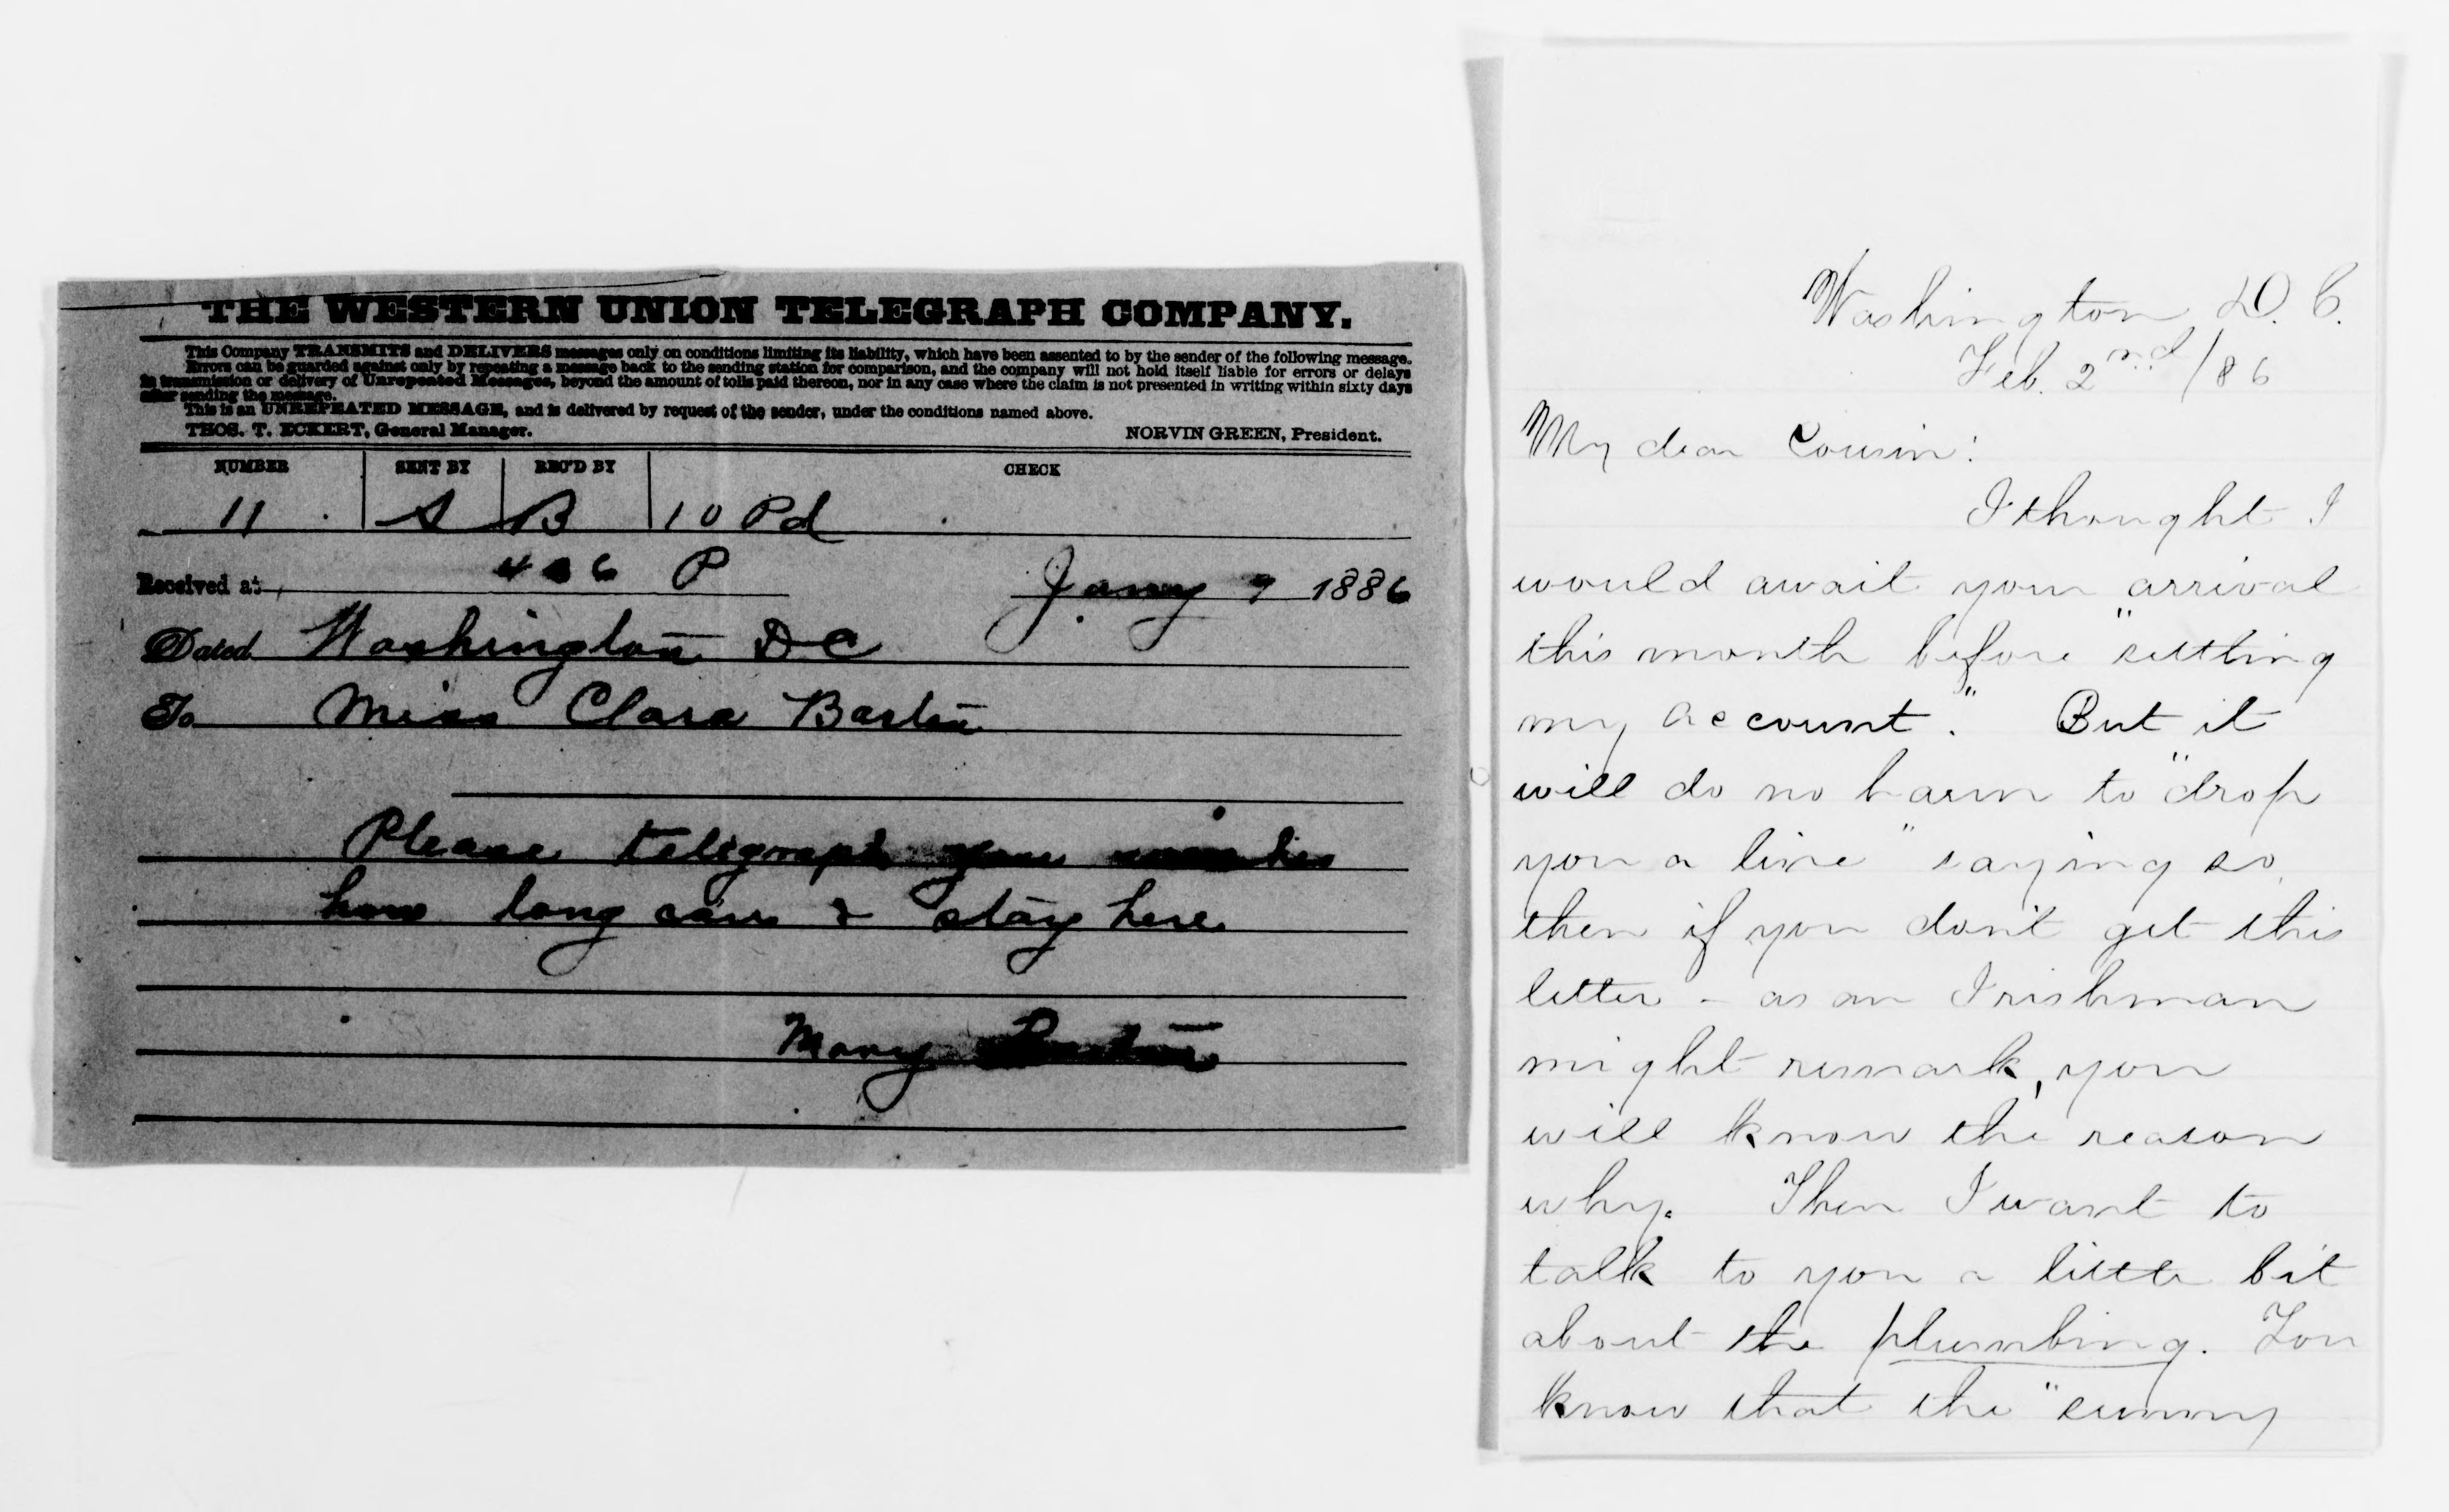 THE WESTERN UNION TELEGRAPH COMPANY.
This Company TRANSMITS and DELIVERS messages only on conditions limiting its liability, which have been assented to by the sender of the following message.
Errors can be guarded against only by repeating a message back to the sending station for comparison, and the company will not hold itself liable for errors or delays
in transmission or delivery of Unrepeated Messages, beyond the amount of tolls paid thereon, nor in any case where the claim is not presented in writing within sixty days
after sending the message.
This is an UNREPEATED MESSAGE, and is delivered by request of the sender, under the conditions named above.
THOS. T. ECKERT, General Manager. NORVIN GREEN, President.
NUMBER SENT BY REC'D BY CHECK
11 S B 10 Pd
Received at 6 P Jany 9 1886
Dated Washington DC
To Miss Clara Barton
Please telegraph your wishes
how long can I stay here
Mary
Washington D. C.
Feb. 2nd/86
My dear Cousin:
I thought I
would await your arrival
this month before "settling
my account." But it
will do no harm to "drop
you a line" saying so,
then if you don't get this
letter - as an Irishman
might remark, you
will know the reason
why. Then I want to
talk to you a little bit
about the plumbing. You
know that the "sunny